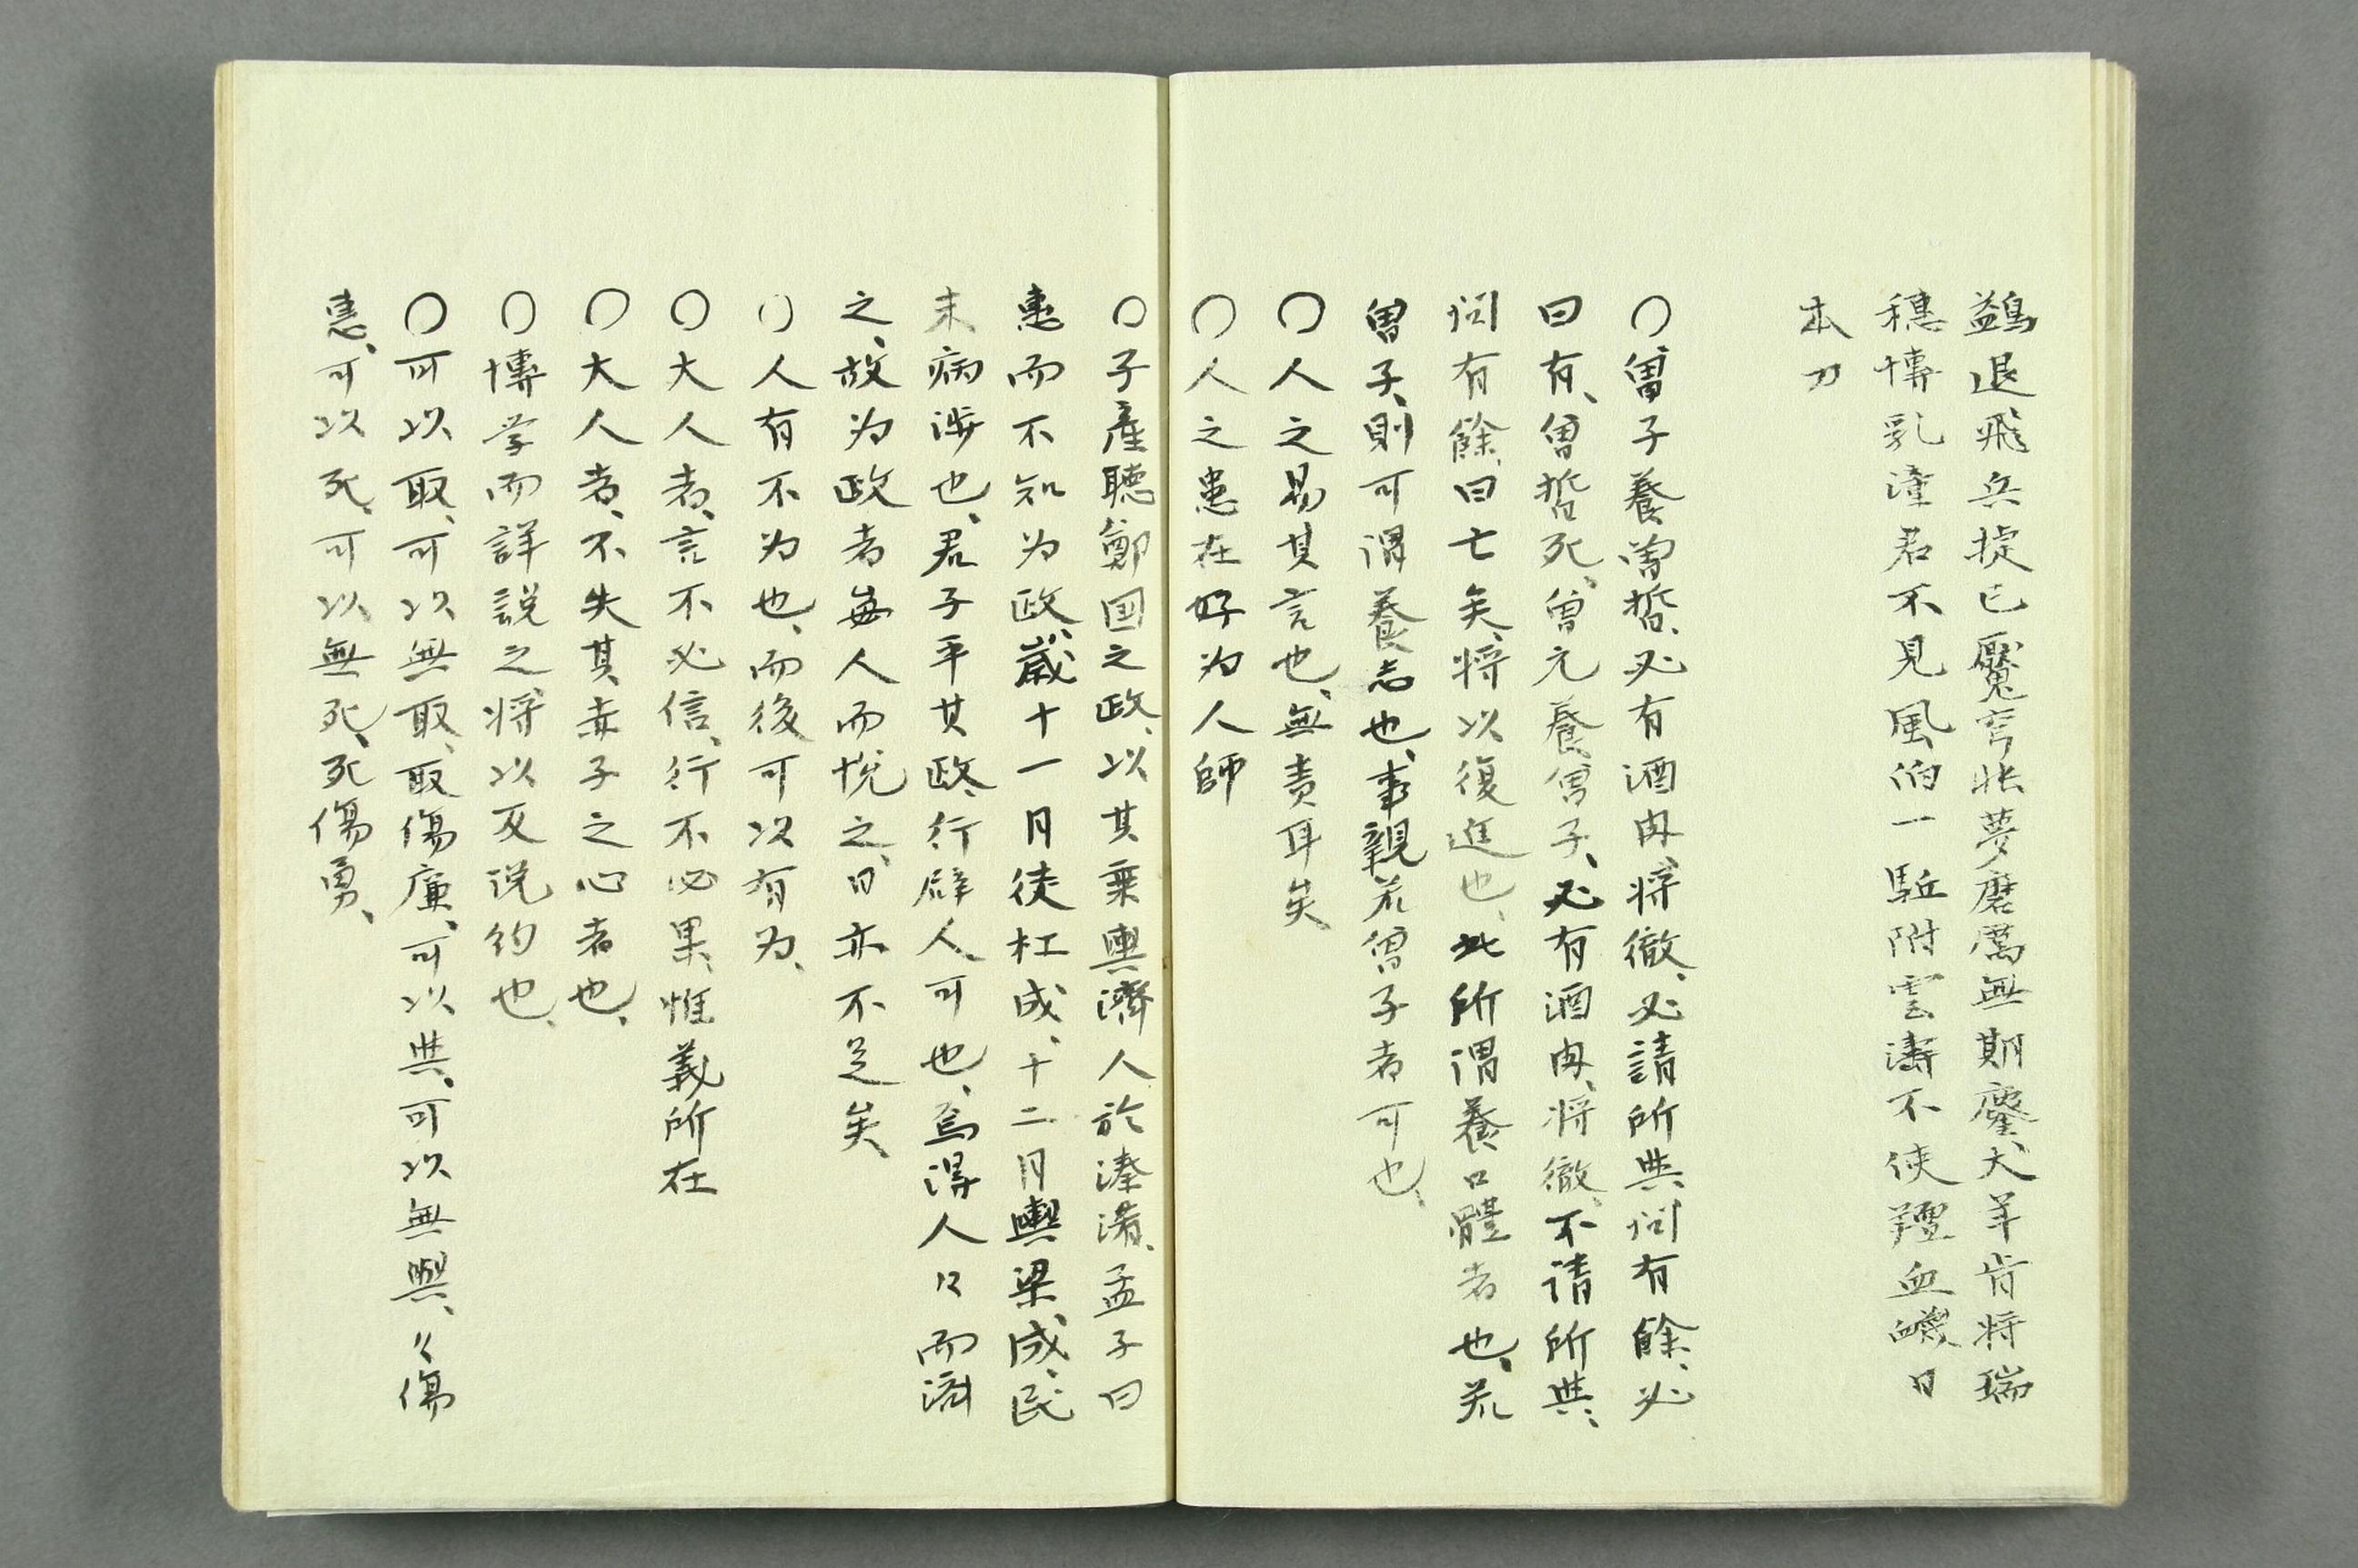 鷁退飛兵掟已魘穹帐夢磨厲無期鏖犬羊肯将瑞
穗博乳湩君不見風伯一駈附雲濤不使羶血衊日
本刀
〇曽子養曽晳、必有酒肉、将徹、必請所與、问有餘、必
曰有、曽晳死、曽元養曽子、必有酒肉、将徹、不请所與、
问有餘、曰亡矣、将以復進也、此所谓養口體者也、若
曽子、則可谓養志也、事親若曽子者可也、
〇人之易其言也、無责耳矣
〇人之患在好为人師
〇子産聴鄭国之政、以其乗輿濟人於溱洧、孟子曰
惠而不知为政、歳十一月徒杠成、十二月輿梁成、民
未病涉也、君子平其政、行辟人、可也、焉得人々而濟
之、故为政者每人而悦之、日亦不足矣
〇人有不为也、而後可以有为、
〇大人者、言不必信、行不必果、惟義所在
〇大人者、不失其赤子之心者也、
〇博学而詳説之、将以反说约也、
〇可以取、可以無取、取傷廉、可以與、可以無與、〻傷
惠、可以死、可以無死、死傷勇、